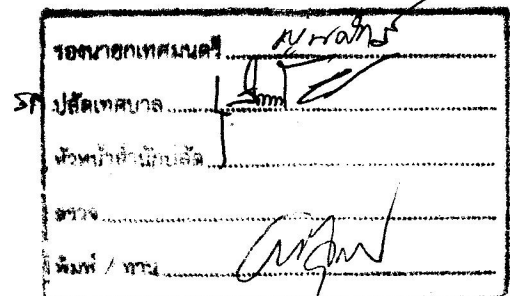 รองนายกเทศมนตรี
รก ปลัดเทศบาล
หัวหน้าสำนักปลัด
ตรวจ
พิมพ์ / ทาน